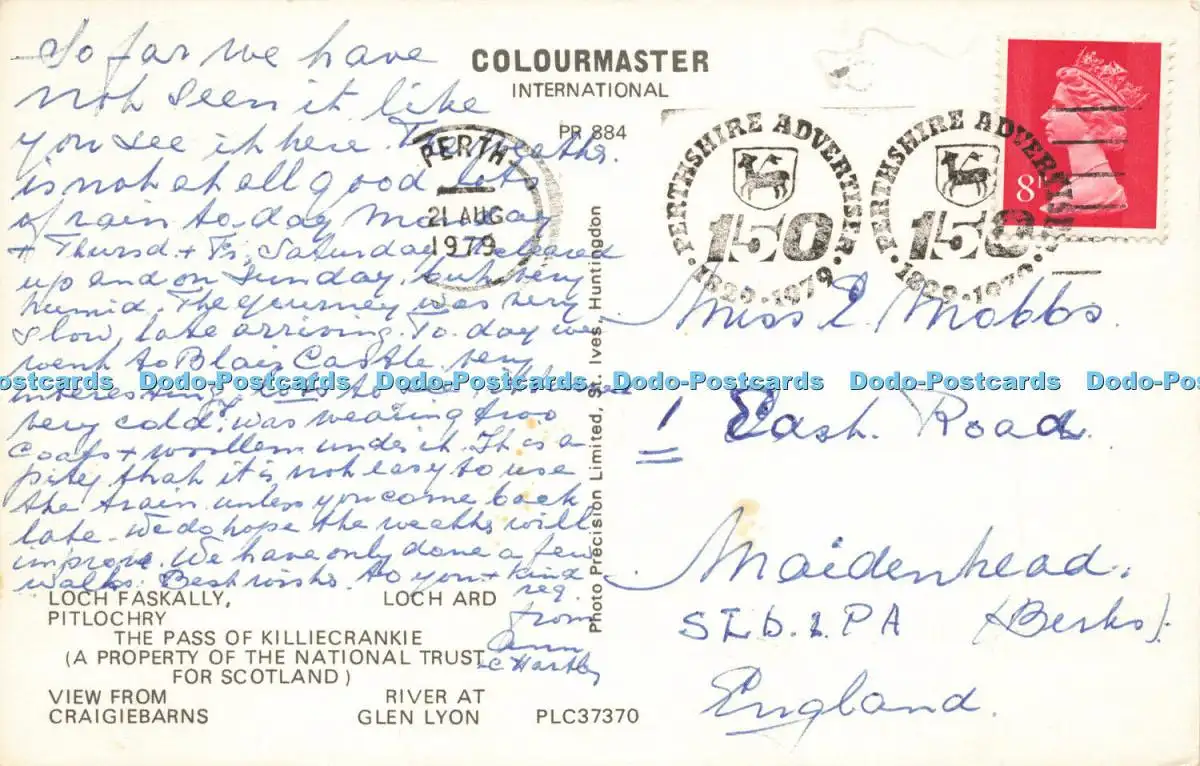 So far we have
not seen it like
you see it here. The weather
is not at all good lots
of rain to-day Monday
+ Thursd + Fr, Saturday it cleared
up and on Sunday, but very
humid. The journey was very
slow, late arriving. To-day we
went to Blair Castle very
interesting, lots to see
very cold, was wearing two
coats + woollens under it. It is a
pity that it is not easy to use
the train unless you come back
late. We do hope the weather will
improve. We have only done a few
walks. Best wishes to you + kind
reg.
from
Ann
C Hartley
COLOURMASTER
INTERNATIONAL
PR 884
PERTH
21 AUG
1979
PERTHSHIRE ADVERTISER
150
1829·1979
PERTHSHIRE ADVERTISER
150
1829·1979
8P
Miss E. Mobbs
1 East Road
Maidenhead,
SL6.1PA (Berks).
England.
Photo Precision Limited, St. Ives, Huntingdon
Dodo-Postcards Dodo-Postcards Dodo-Postcards Dodo-Postcards Dodo-Postcards Dodo-Postcards
LOCH FASKALLY, LOCH ARD
PITLOCHRY
THE PASS OF KILLIECRANKIE
(A PROPERTY OF THE NATIONAL TRUST
FOR SCOTLAND)
VIEW FROM RIVER AT
CRAIGIEBARNS GLEN LYON PLC37370